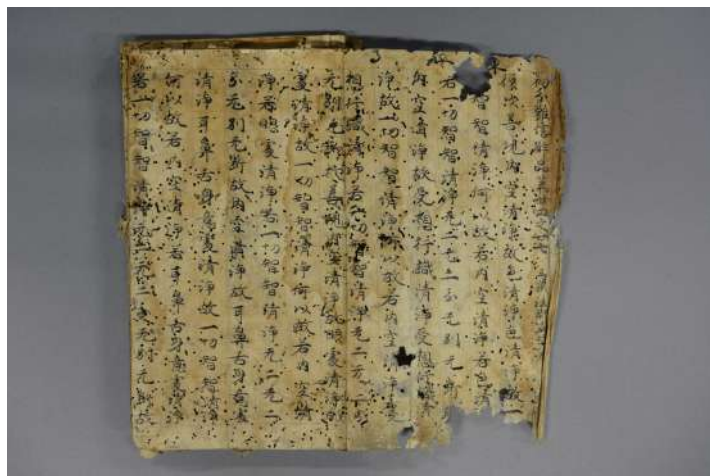 初分難信解品第三十四之
復次善現內空清淨故色清淨色清淨故一
智智清淨何以故若內空清淨若色清
若一切智智清淨无二无二分无別无斷
內空清淨故受想行識清淨受想行識清
淨故一切智智清淨何以故若內空清淨若
想行識清淨若一切智智清淨无二无二分
无別无斷故善現內空清淨故眼處清淨眼
處清淨故一切智智清淨何以故若內空清
淨若眼處清淨若一切智智清淨无二无二
分无別无斷故內空清淨故耳鼻舌身意處
清淨耳鼻舌身意處清淨故一切智智清淨
何以故若內空清淨若耳鼻舌身意處清淨
若一切智智清淨无二无二分无別无斷故